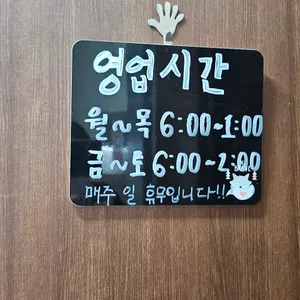 영업시간
월~목 6:00~1:00
금~토 6:00~2:00
매주 일 휴무입니다!!